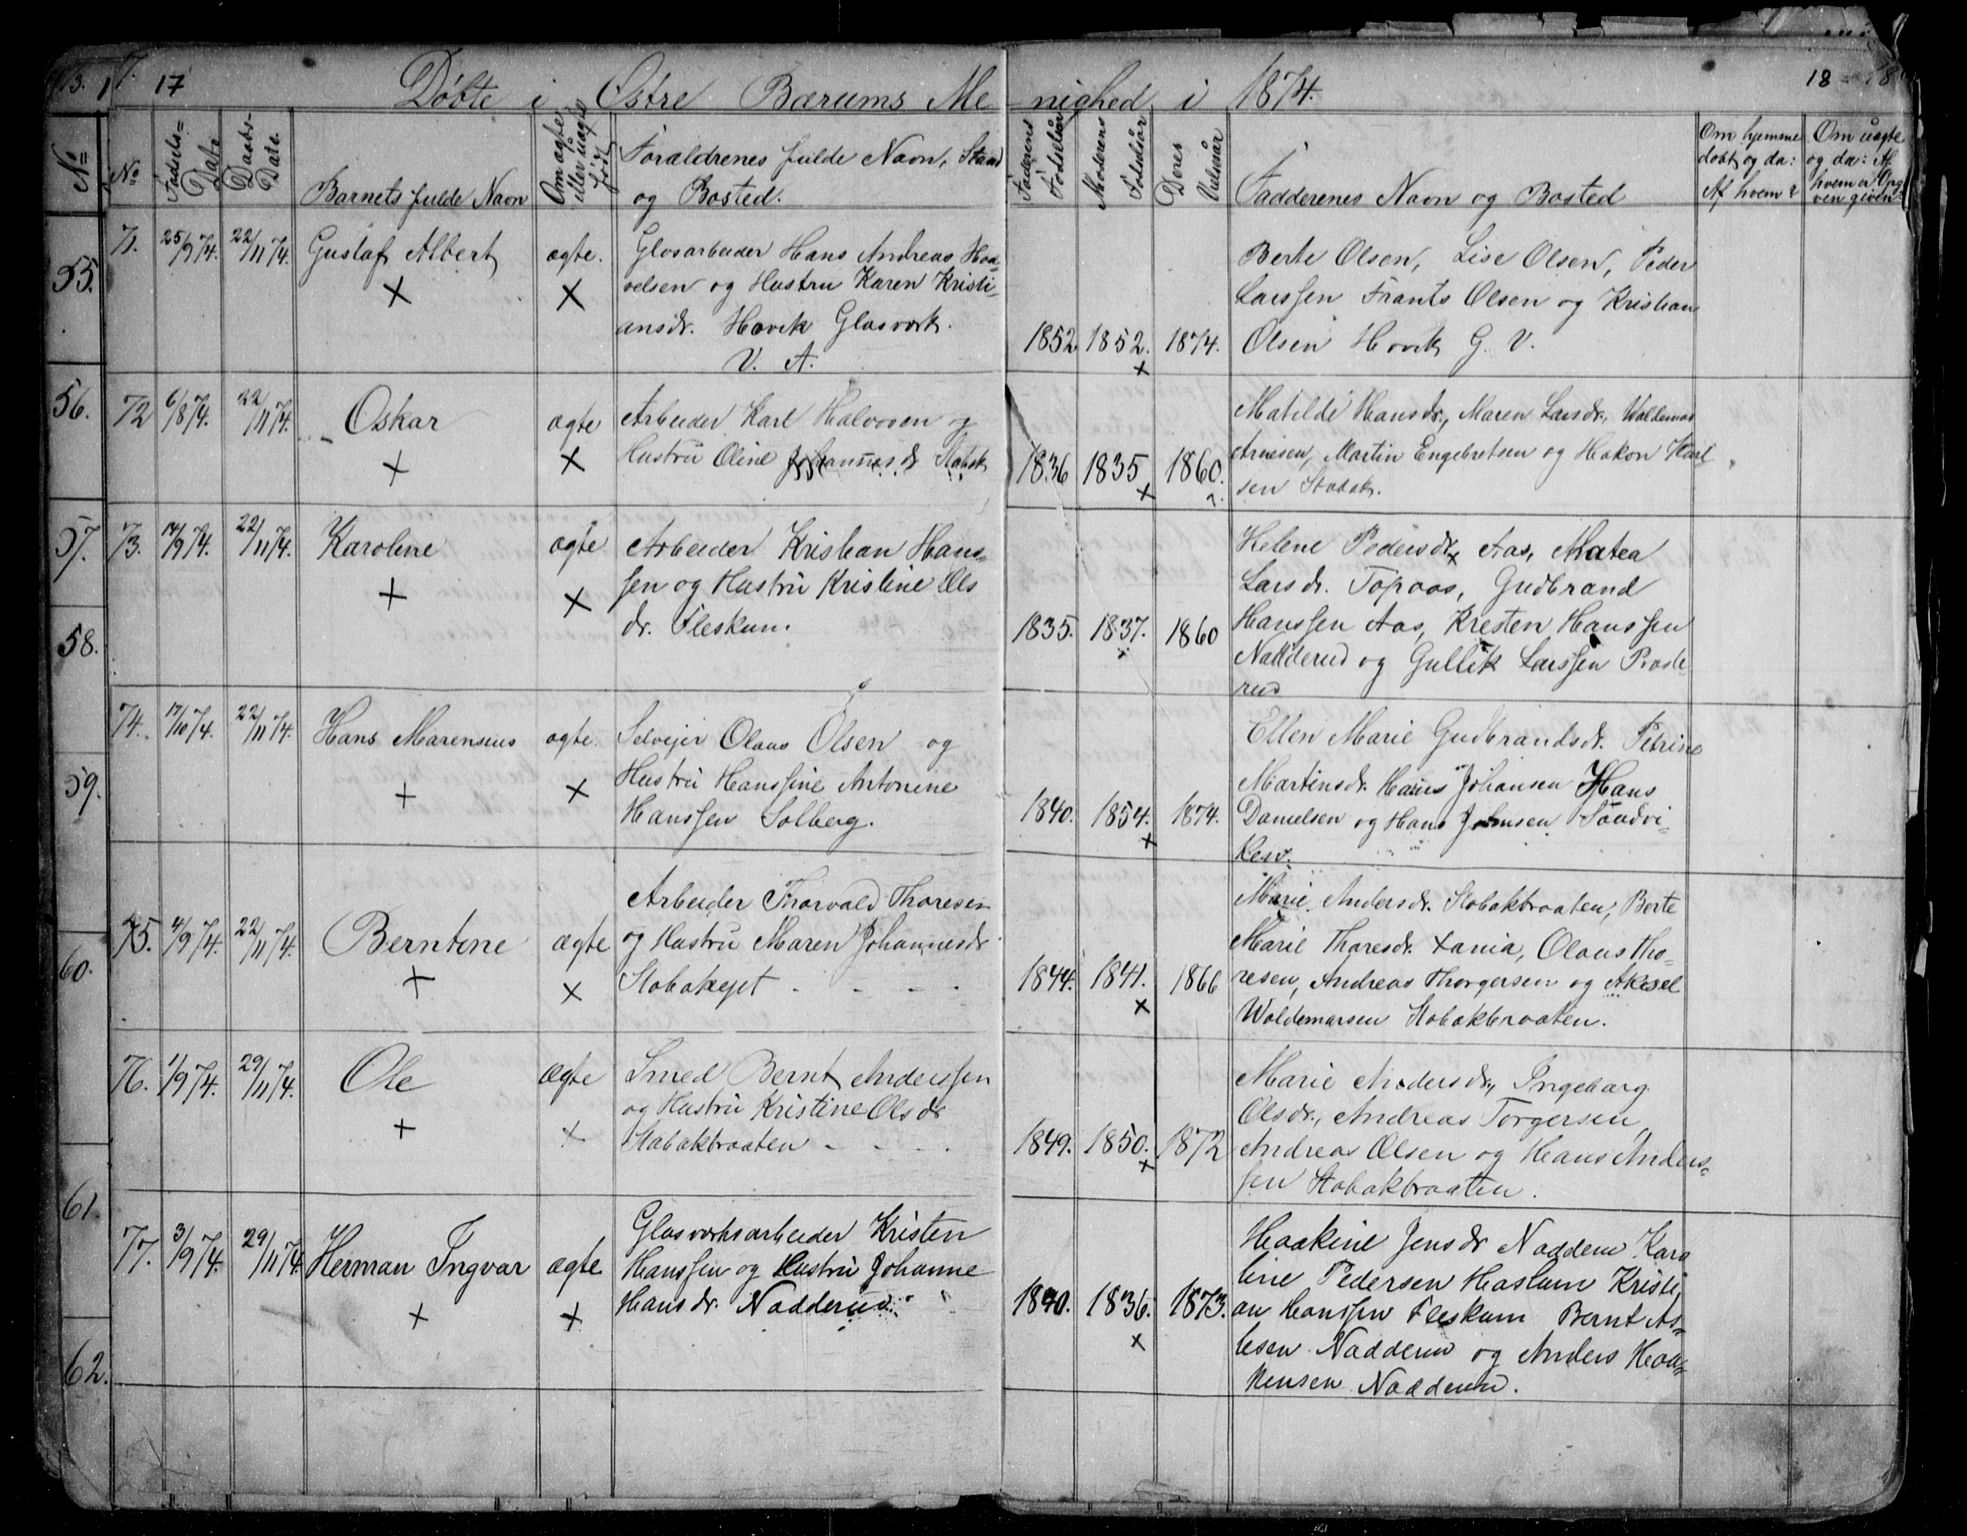 17
18
Døbte i Østre Bærums Menighed i 1874.
No
No
Fødsels=
Dato
Daabs-
Dato.
Barnets fulde Navn
Om ægte
eller uægte
født
Forældrenes fulde Navn, Stand
og Bosted.
Faderens
Fødselsår
Moderens
Fødselsår
Deres
Vielsesår
Fadderenes Navn og Bosted
Om hjemme
døbt og da:
Af hvem?
Om uægte
og da: Af
hvem er Opga
ven given
55.
71.
25/9 74.
22/11 74.
Gustaf Albert
ægte.
Glasarbeider Hans Andreas Haa-
velsen og Hustru Karen Kristi-
ansdr. Høvik Glasværk.
V. A.
1852
1852.
1874.
Berte Olsen, Lise Olsen, Peder
Larssen Frants Olsen og Kristian
Olsen Høvik G. V.
56.
72
6/8 74.
22/11 74.
Oskar
ægte
Arbeider Karl Halvorsen og
Hustru Oline Johannesdr Stabæk
1836
1835
1860.
?.
Matilde Hansdr., Maren Larsdr., Waldemar
Arnesen, Martin Engebretsen og Hakon Karl
sen Stabæk.
57.
73.
14/9 74.
22/11 74.
Karoline
ægte
Arbeider Kristian Hans-
sen og Hustru Kristine Ols
dr. Fleskum.
1835.
1837.
1860
Helene Pedersdr Aas, Matea
Larsdr. Topaas, Gudbrand
Hanssen Aas, Kresten Hanssen
Nadderud og Gullik Larssen Preste-
rud
58.
74.
17/10 74.
22/11 74.
Hans Marensius
ægte.
Selveier Olaus Olsen og
Hustru Hanssine Antonine
Hanssen Solberg.
1840.
1854.
1874.
Ellen Marie Gudbrandsdr. Petrine
Martinsdr. Hans Johansen Hans
Danielsen og Hans Johnsen Sandvi-
ken.
59.
75.
4/9 74.
22/11 74.
Berntine
ægte
Arbeider Thorvald Thoresen
og Hustru Maren Johannesdr
Stabækejet - - - -
1844.
1841.
1866
Marie Andersdr. Stabækbraaten, Berte
Marie Thoresdr. Xania, Olaus Tho-
resen, Andreas Thorgersen og Aksel
Woldemarsen Stabækbraaten.
60.
76.
1/9 74.
29/11 74.
Ole
Ægte
Smed Bernt Anderssen
og Hustru Kristine Olsdr
Stabækbraaten - - - .
1849.
1850.
1872
Marie Andersdr., Ingeborg
Olsdr., Andreas Torgersen
Andreas Olsen og Hans Anders-
sen Stabækbraaten.
61.
77.
3/9 74.
29/11 74.
Herman Ingvar
ægte
Glasværksarbeider Kristen
Hanssen og Hustru Johanne
Hansdr. Nadderud.
1840.
1836.
1873.
Haakine Jensdr Nadderu Karo
line Pedersen Haslum Kristi-
an Hanssen Fleskum Bernt As-
lesen Nadderu og Anders Haa-
kensen Nadderu.
62.